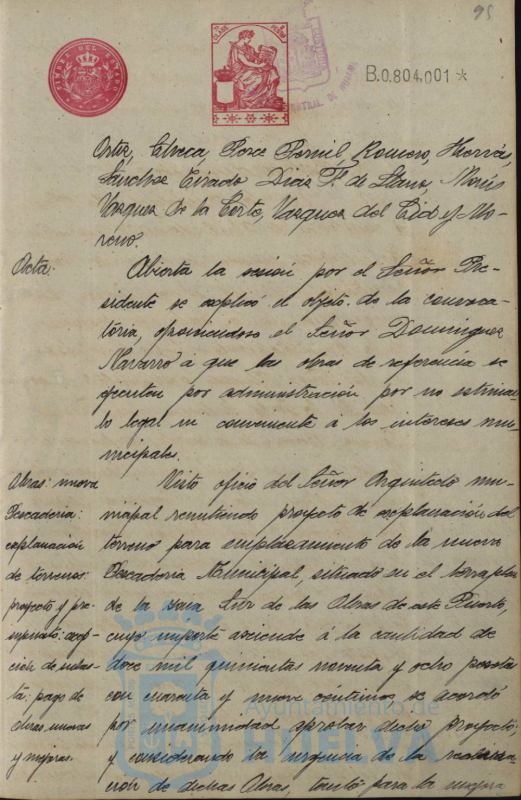 95
TIMBRE DEL ESTADO
CLASE
B.0.804,001*
Ortiz, Checa, Ponce Bernil, Romero, Hierrás,
Sanchez Tirado Diaz F. de Llano, Morís
Vazquez De la Corte, Vazquez del Cid y Mo-
reno.
Acta:
Abierta la sesión por el Señor Pre-
sidente se explicó el objeto de la convoca-
toria, oponiendose el Señor Dominguez
Navarro á que las obras de referencia se
ejecuten por administración por no estimar-
lo legal ni conveniente á los intereses mu-
nicipales.
Obras: nueva
Pescaderia:
explanación
de terrenos:
proyecto y pre-
supuesto: acep-
ción de subas-
ta: pago de
obras nuevas
y mejoras.
Visto oficio del Señor Arquitecto mu-
nicipal remitiendo proyecto de explanación del
terreno para emplazamiento de la nueva
Pescaderia Municipal, situado en el terraplen
de la zona Sur de las Obras de este Puerto,
cuyo importe asciende á la cantidad de
doce mil quinientas noventa y ocho pesetas
con cuarenta y nueve centimos, se acordó
por unanimidad aprobar dicho proyecto;
y considerando la urgencia de la realiza-
ción de dichas Obras, tanto para la mejora
Ayuntamiento de
HUELVA